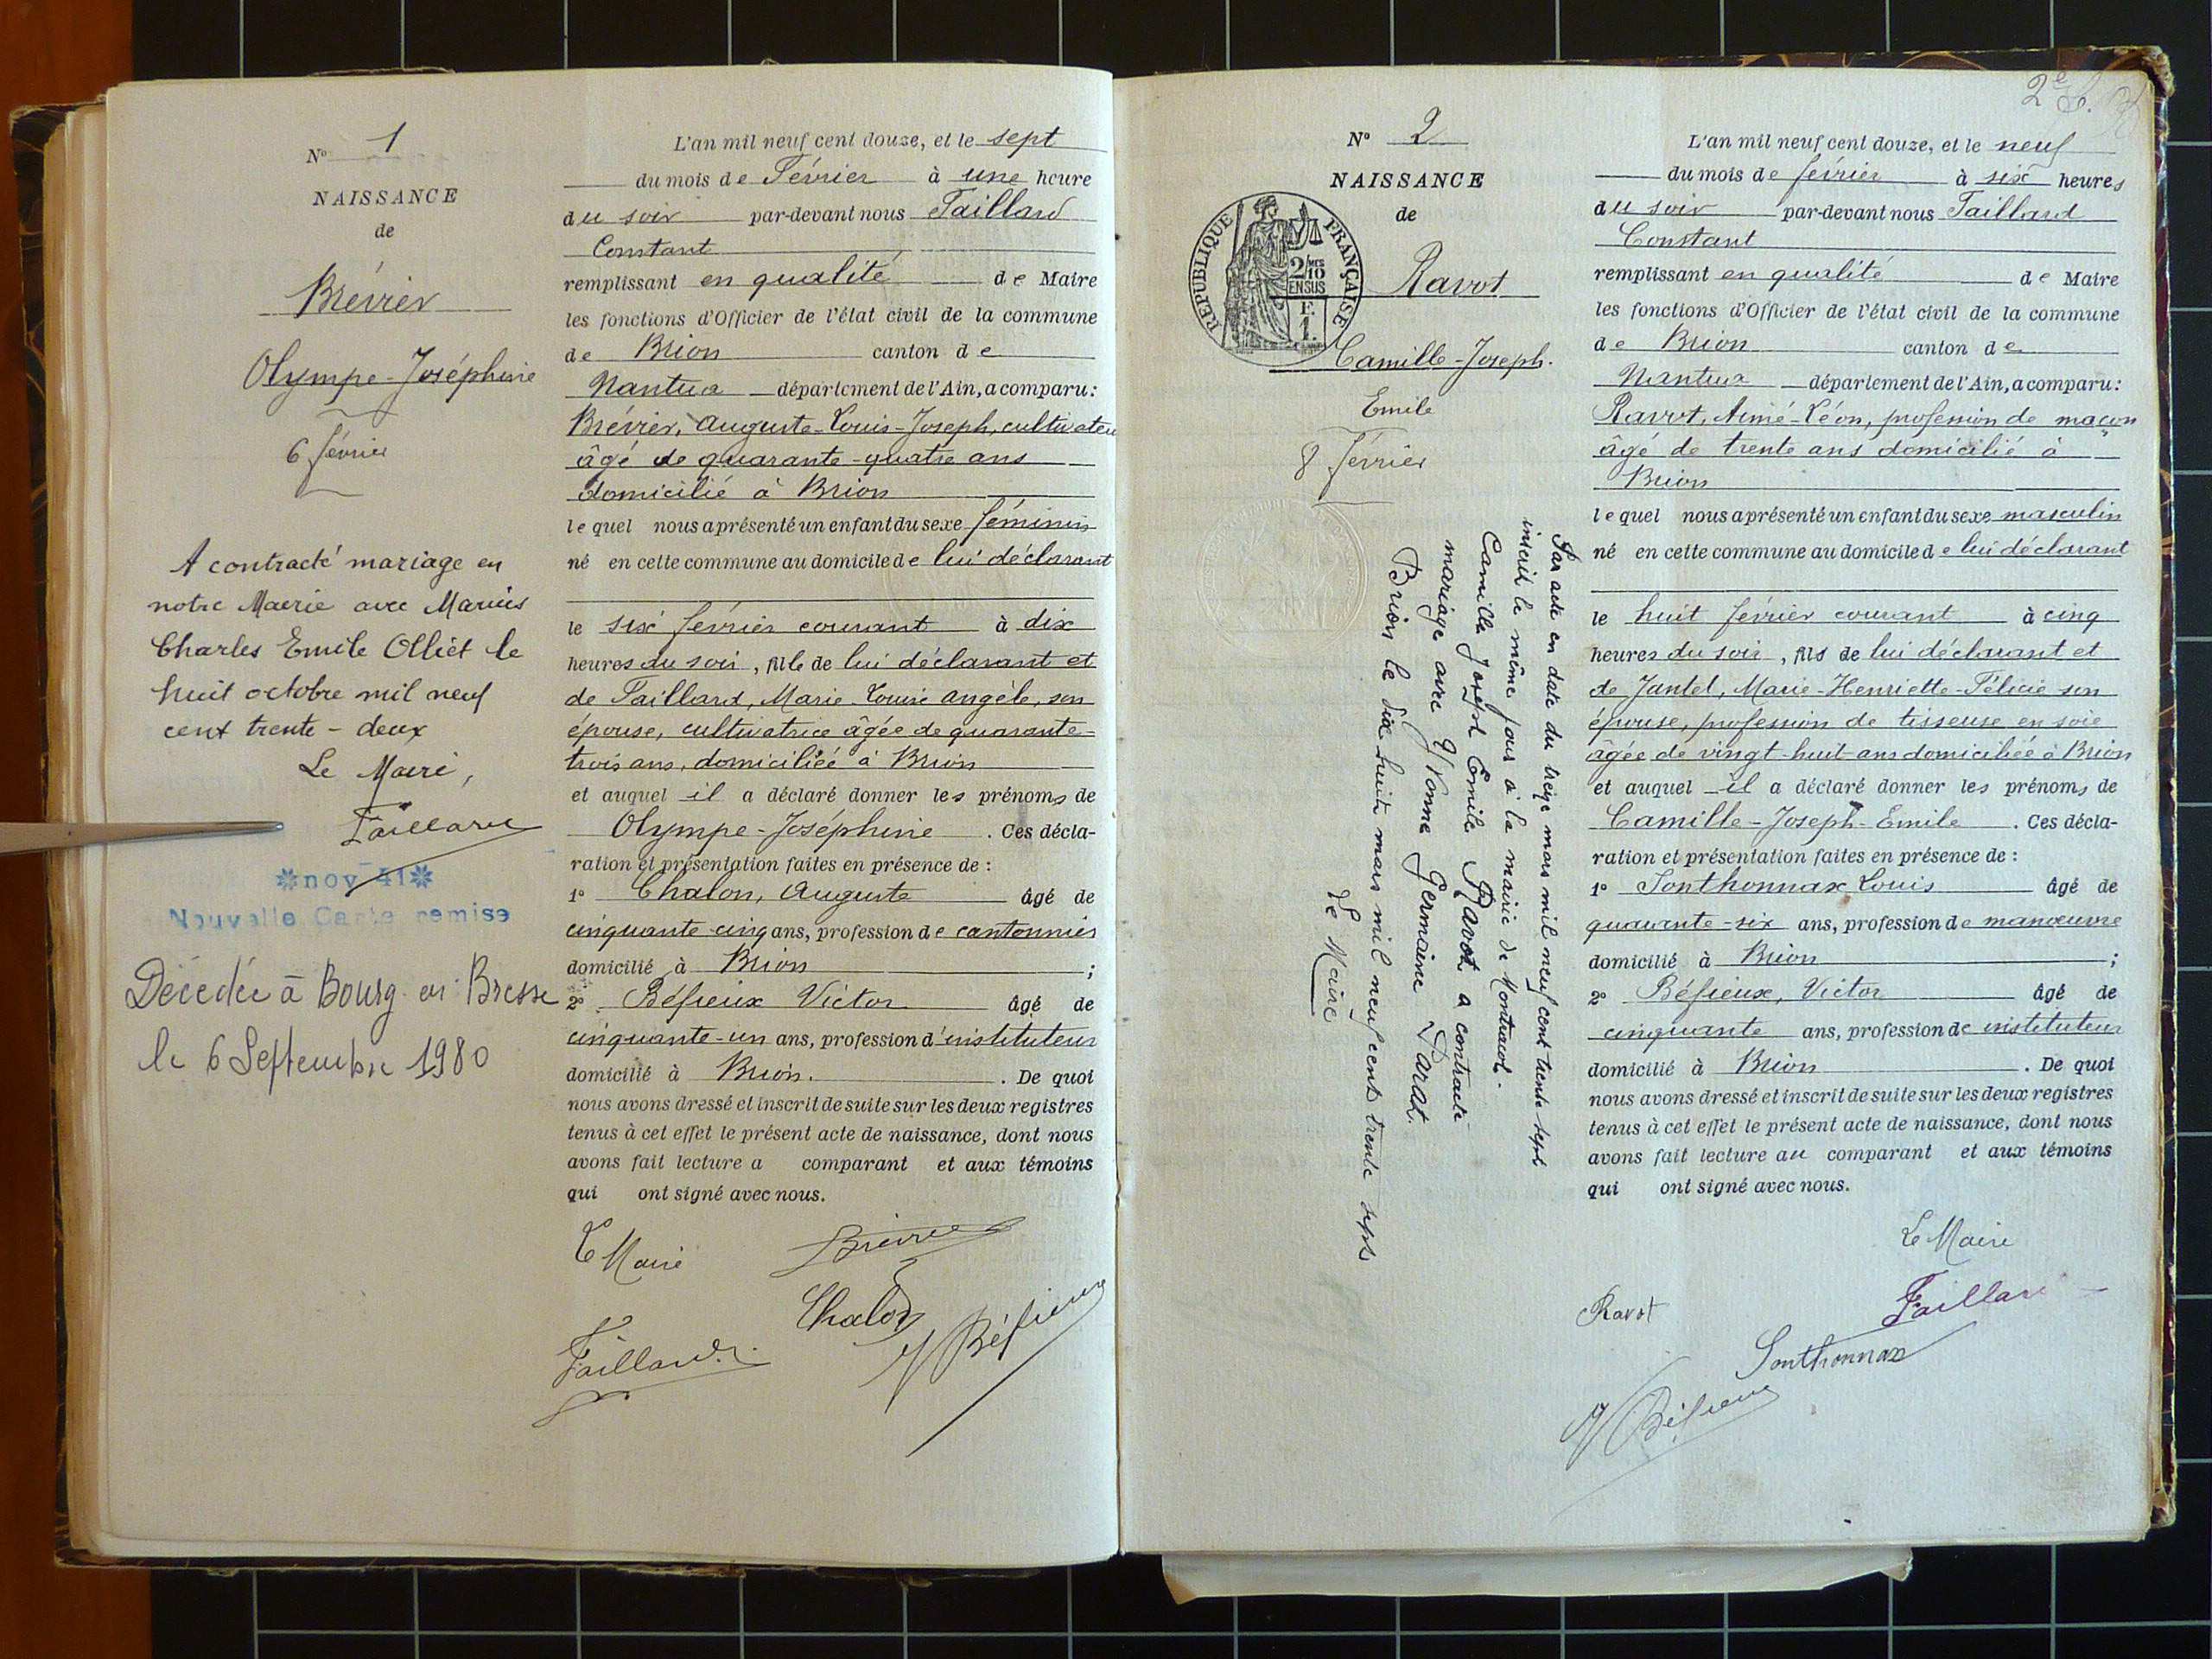 N° 1
NAISSANCE
de
Brévier
Olympe-Joséphine
6 février
A contracté mariage en
notre Mairie avec Marius
Charles Emile Olliet le
huit octobre mil neuf
cent trente-deux
Le Maire,
Taillard
nov 41
Nouvelle Carte remise
Décédée à Bourg en Bresse
le 6 Septembre 1980
L'an mil neuf cent douze, et le sept
du mois de Février à une heure
du soir par-devant nous Taillard
Constant
remplissant en qualité de Maire
les fonctions d'Officier de l'état civil de la commune
de Brion canton de
Nantua département de l'Ain, a comparu:
Brévier, Auguste-Louis-Joseph, cultivateu
âgé de quarante-quatre ans
domicilié à Brion
lequel nous a présenté un enfant du sexe féminin
né en cette commune au domicile de lui déclarant
le six février courant à dix
heures du soir, fille de lui déclarant et
de Taillard, Marie-Louise Angèle, son
épouse, cultivatrice âgée de quarante-
trois ans, domiciliée à Brion
et auquel il a déclaré donner les prénoms de
Olympe-Joséphine. Ces décla-
ration et présentation faites en présence de :
1° Chalon, Auguste âgé de
cinquante-cinq ans, profession de cantonnier
domicilié à Brion ;
2° Béfieux Victor âgé de
cinquante-un ans, profession d'instituteur
domicilié à Brion. . De quoi
nous avons dressé et inscrit de suite sur les deux registres
tenus à cet effet le présent acte de naissance, dont nous
avons fait lecture a comparant et aux témoins
qui ont signé avec nous.
Le Maire Brévier
Chalon
Taillard. V Béfieux
2e
N° 2
NAISSANCE
de
REPUBLIQUE FRANÇAISE
2/10 MES
EN SUS
F.
1.
Ravot
Camille-Joseph.
Emile
8 février
Par acte en date du treize mars mil neuf cent trente sept
inscrit le même jour à la mairie de
Camille Joseph Emile Ravot a contracté
mariage avec Yvonne Germaine Parat.
Brion le dix huit mars mil neuf cent trente sept
Le Maire
L'an mil neuf cent douze, et le neuf
du mois de février à six heures
du soir par-devant nous Taillard
Constant
remplissant en qualité de Maire
les fonctions d'Officier de l'état civil de la commune
de Brion canton de
Nantua département de l'Ain, a comparu:
Ravot, Aimé-Léon, profession de maçon
âgé de trente ans domicilié à
Brion
lequel nous a présenté un enfant du sexe masculin
né en cette commune au domicile de lui déclarant
le huit février courant à cinq
heures du soir, fils de lui déclarant et
de Jantet, Marie-Henriette-Félicie son
épouse, profession de tisseuse en soie
âgée de vingt-huit ans domiciliée à Brion
et auquel il a déclaré donner les prénoms de
Camille-Joseph-Emile. Ces décla-
ration et présentation faites en présence de :
1° Sonthonnax, Louis âgé de
quarante-six ans, profession de manœuvre
domicilié à Brion ;
2° Béfieux, Victor âgé de
cinquante ans, profession de instituteur
domicilié à Brion . De quoi
nous avons dressé et inscrit de suite sur les deux registres
tenus à cet effet le présent acte de naissance, dont nous
avons fait lecture au comparant et aux témoins
qui ont signé avec nous.
Le Maire
Ravot Taillard
Sonthonnax
V Béfieux